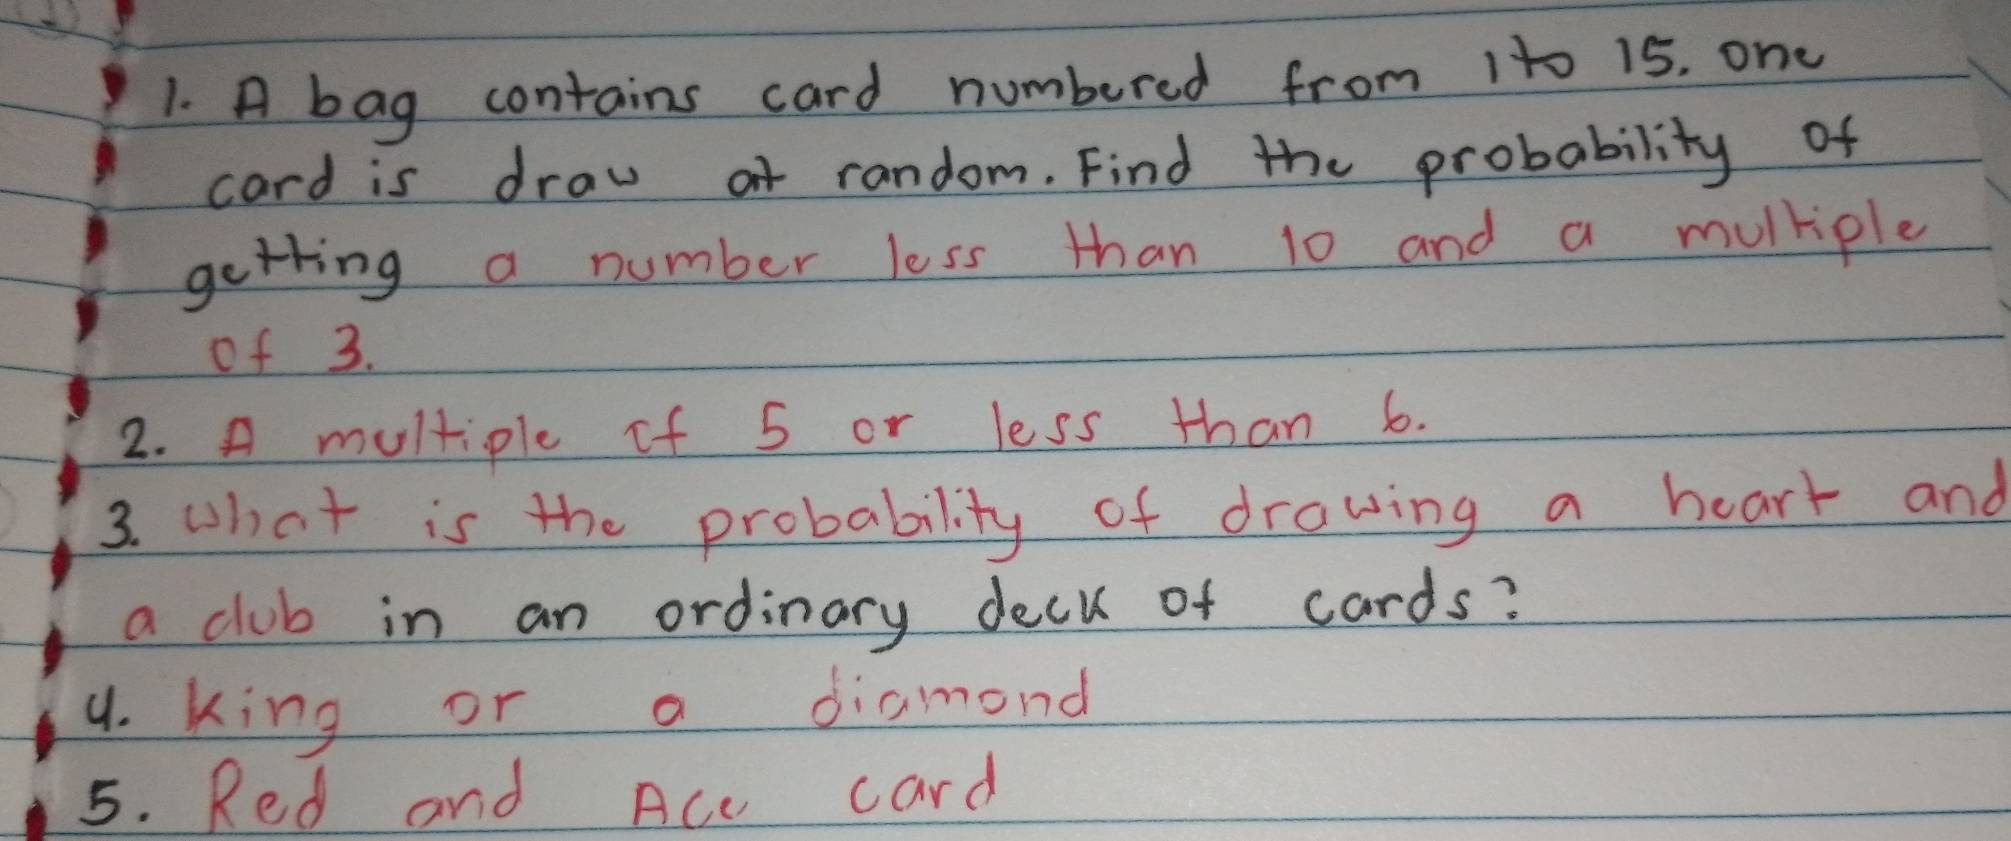 1. A bag contains card numbered from 1 to 15. one
card is draw at random. Find the probability of
getting a number less than 10 and a multiple
of 3.
2. A multiple of 5 or less than 6.
3. What is the probability of drawing a heart and
a club in an ordinary deck of cards?
4. King or a diamond
5. Red and Ace card